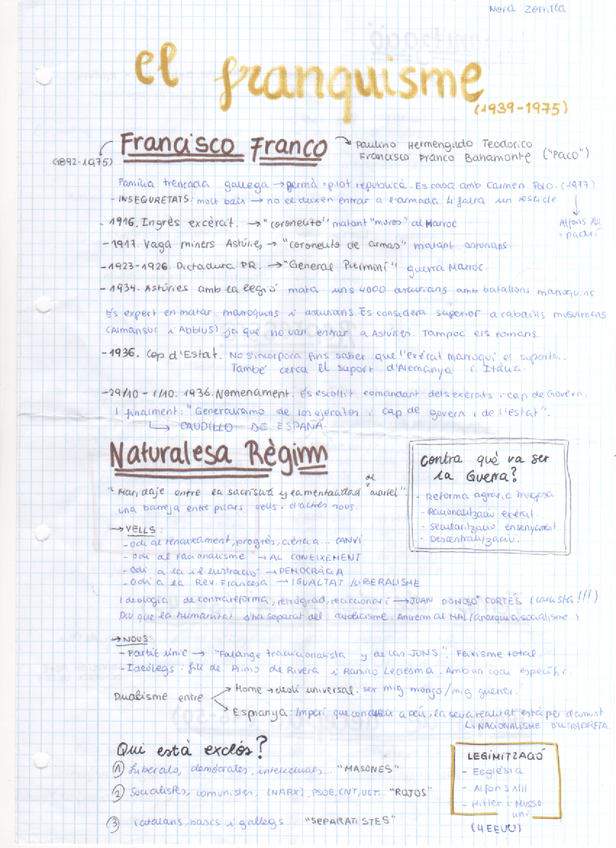 Nora Zorrilla
el franquisme
(1939-1975)
Francisco Franco
Paulino Hermengildo Teodorico
(1892-1975)
Francisco Franco Bahamonte ("Paco")
Família trencada gallega → germà pilot republicà. Es casa amb Carmen Polo. (1917)
- INSEGURETATS: molt baix → no el deixen entrar a l'armada. li faltà un
Alfons XIII
padrí
- 1916. Ingrés exèrcit. → "coronelito" matant "moros" al Marroc
- 1917. Vaga miners Astúries → "coronelito de" matant asturians.
- 1923-1926. Dictadura PR. → "General" guerra Marroc.
- 1934. Astúries amb la legió mata uns 4000 asturians amb batallons marroquins
És expert en matar marroquins i asturians. Es considera superior a cabdills musulmans
(Almansur i) ja que no van entrar a Astúries. Tampoc els romans.
- 1936. Cop d'Estat. No s'incorpora fins saber que l'exèrcit marroquí el suporta.
També cerca el suport d'Alemanya i Itàlia.
- 29/10 - 1/10. 1936. Nomenament. És escollit comandant dels exèrcits i cap de Govern.
I finalment: "Generalísimo de los ejércitos i cap de govern i de l'estat".
↳ CAUDILLO DE ESPAÑA.
Naturalesa Règim
Contra què va ser
la Guerra?
- Reforma agrària
- Racionalització exèrcit.
- Secularització ensenyament
- Descentralització.
"Maridaje entre la sacristía y la mentalidad"
una barreja entre pilars vells i d'altres nous.
→ VELLS:
- Odi al renaixement, progrés, ciència... CANVI
- Odi al racionalisme → AL CONEIXEMENT
- Odi a la il·lustració → DEMOCRÀCIA
- Odi a la Rev. Francesa → IGUALTAT / LIBERALISME
Ideologia de contrareforma, retrògrad, reaccionari → JUAN DONOSO CORTÉS (carlista!!!)
Diu que la humanitat s'ha separat del catolicisme. Anirem al MAL (anarquia, socialisme)
→ NOUS:
- Partit únic → "Falange tradicionalista y de las JONS". Feixisme total.
- Ideòlegs: fill de Primo de Rivera i Ramiro Ledesma. Amb un específic.
Dualisme entre
Home → universal. ser mig monjo / mig guerrer.
Espanya: Imperi que condueix a Déu, la seva realitat està per damunt
↳ NACIONALISME D'ULTRADRETA
Qui està exclòs?
① Liberals, demòcrates, intel·lectuals... "MASONES"
② Socialistes, comunistes, (MARX), PSOE, CNT, UGT... "ROJOS"
③ catalans, bascs i gallegs "SEPARATISTES"
LEGIMITZACIÓ
- Església
- Alfons XIII
- Hitler i Musso
lini
(↳ EEUU)